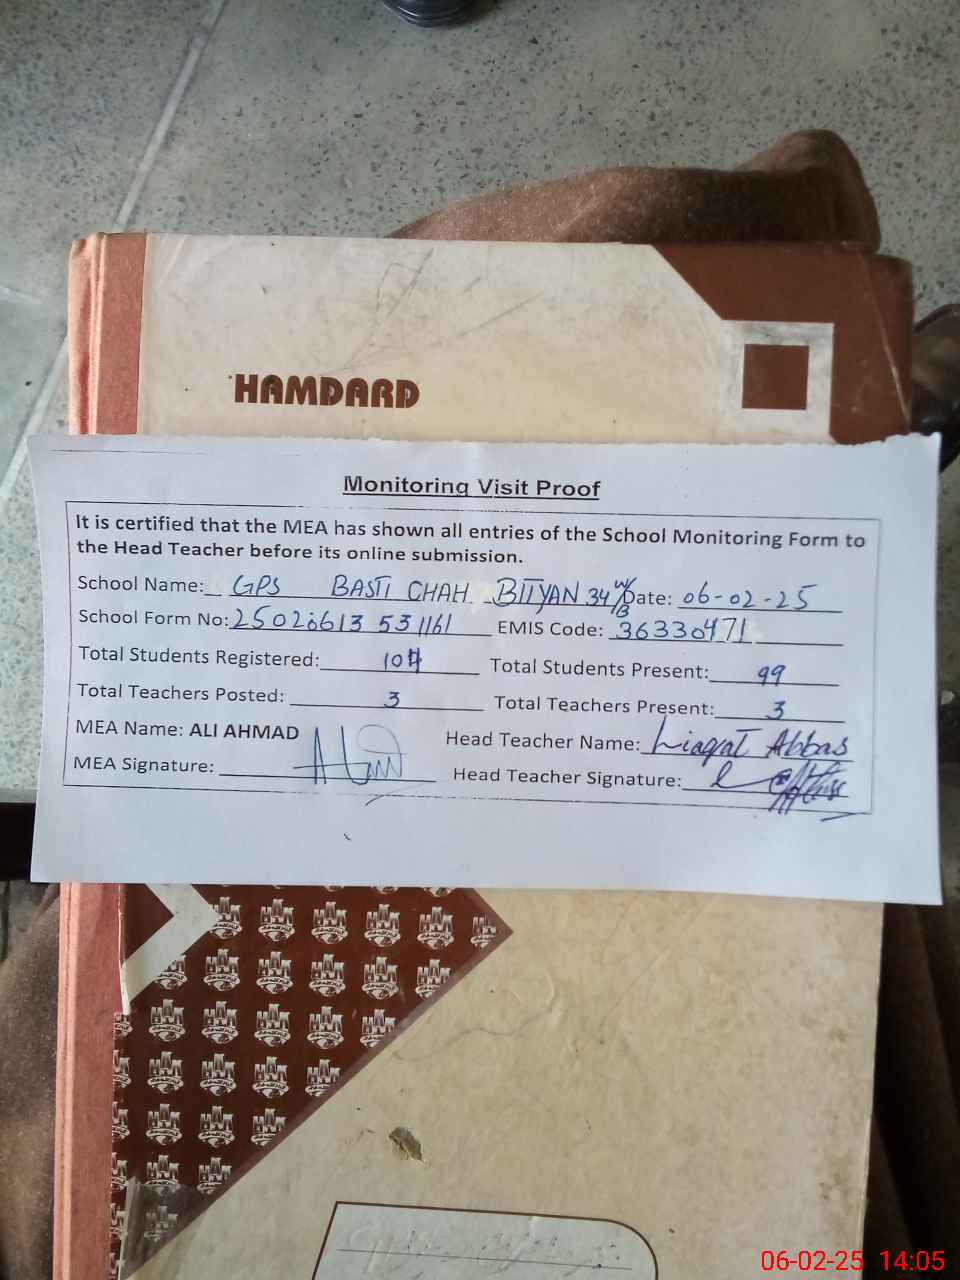 HAMDARD
Monitoring Visit Proof
It is certified that the MEA has shown all entries of the School Monitoring Form to
the Head Teacher before its online submission.
School Name: GPS BASTI CHAH BITYAN 34 W/B Date: 06-02-25
School Form No: 25020613531161 EMIS Code: 36330471
Total Students Registered: 104 Total Students Present: 99
Total Teachers Posted: 3 Total Teachers Present: 3
MEA Name: ALI AHMAD Head Teacher Name: Liaqat Abbas
MEA Signature: Head Teacher Signature:
06-02-25 14:05